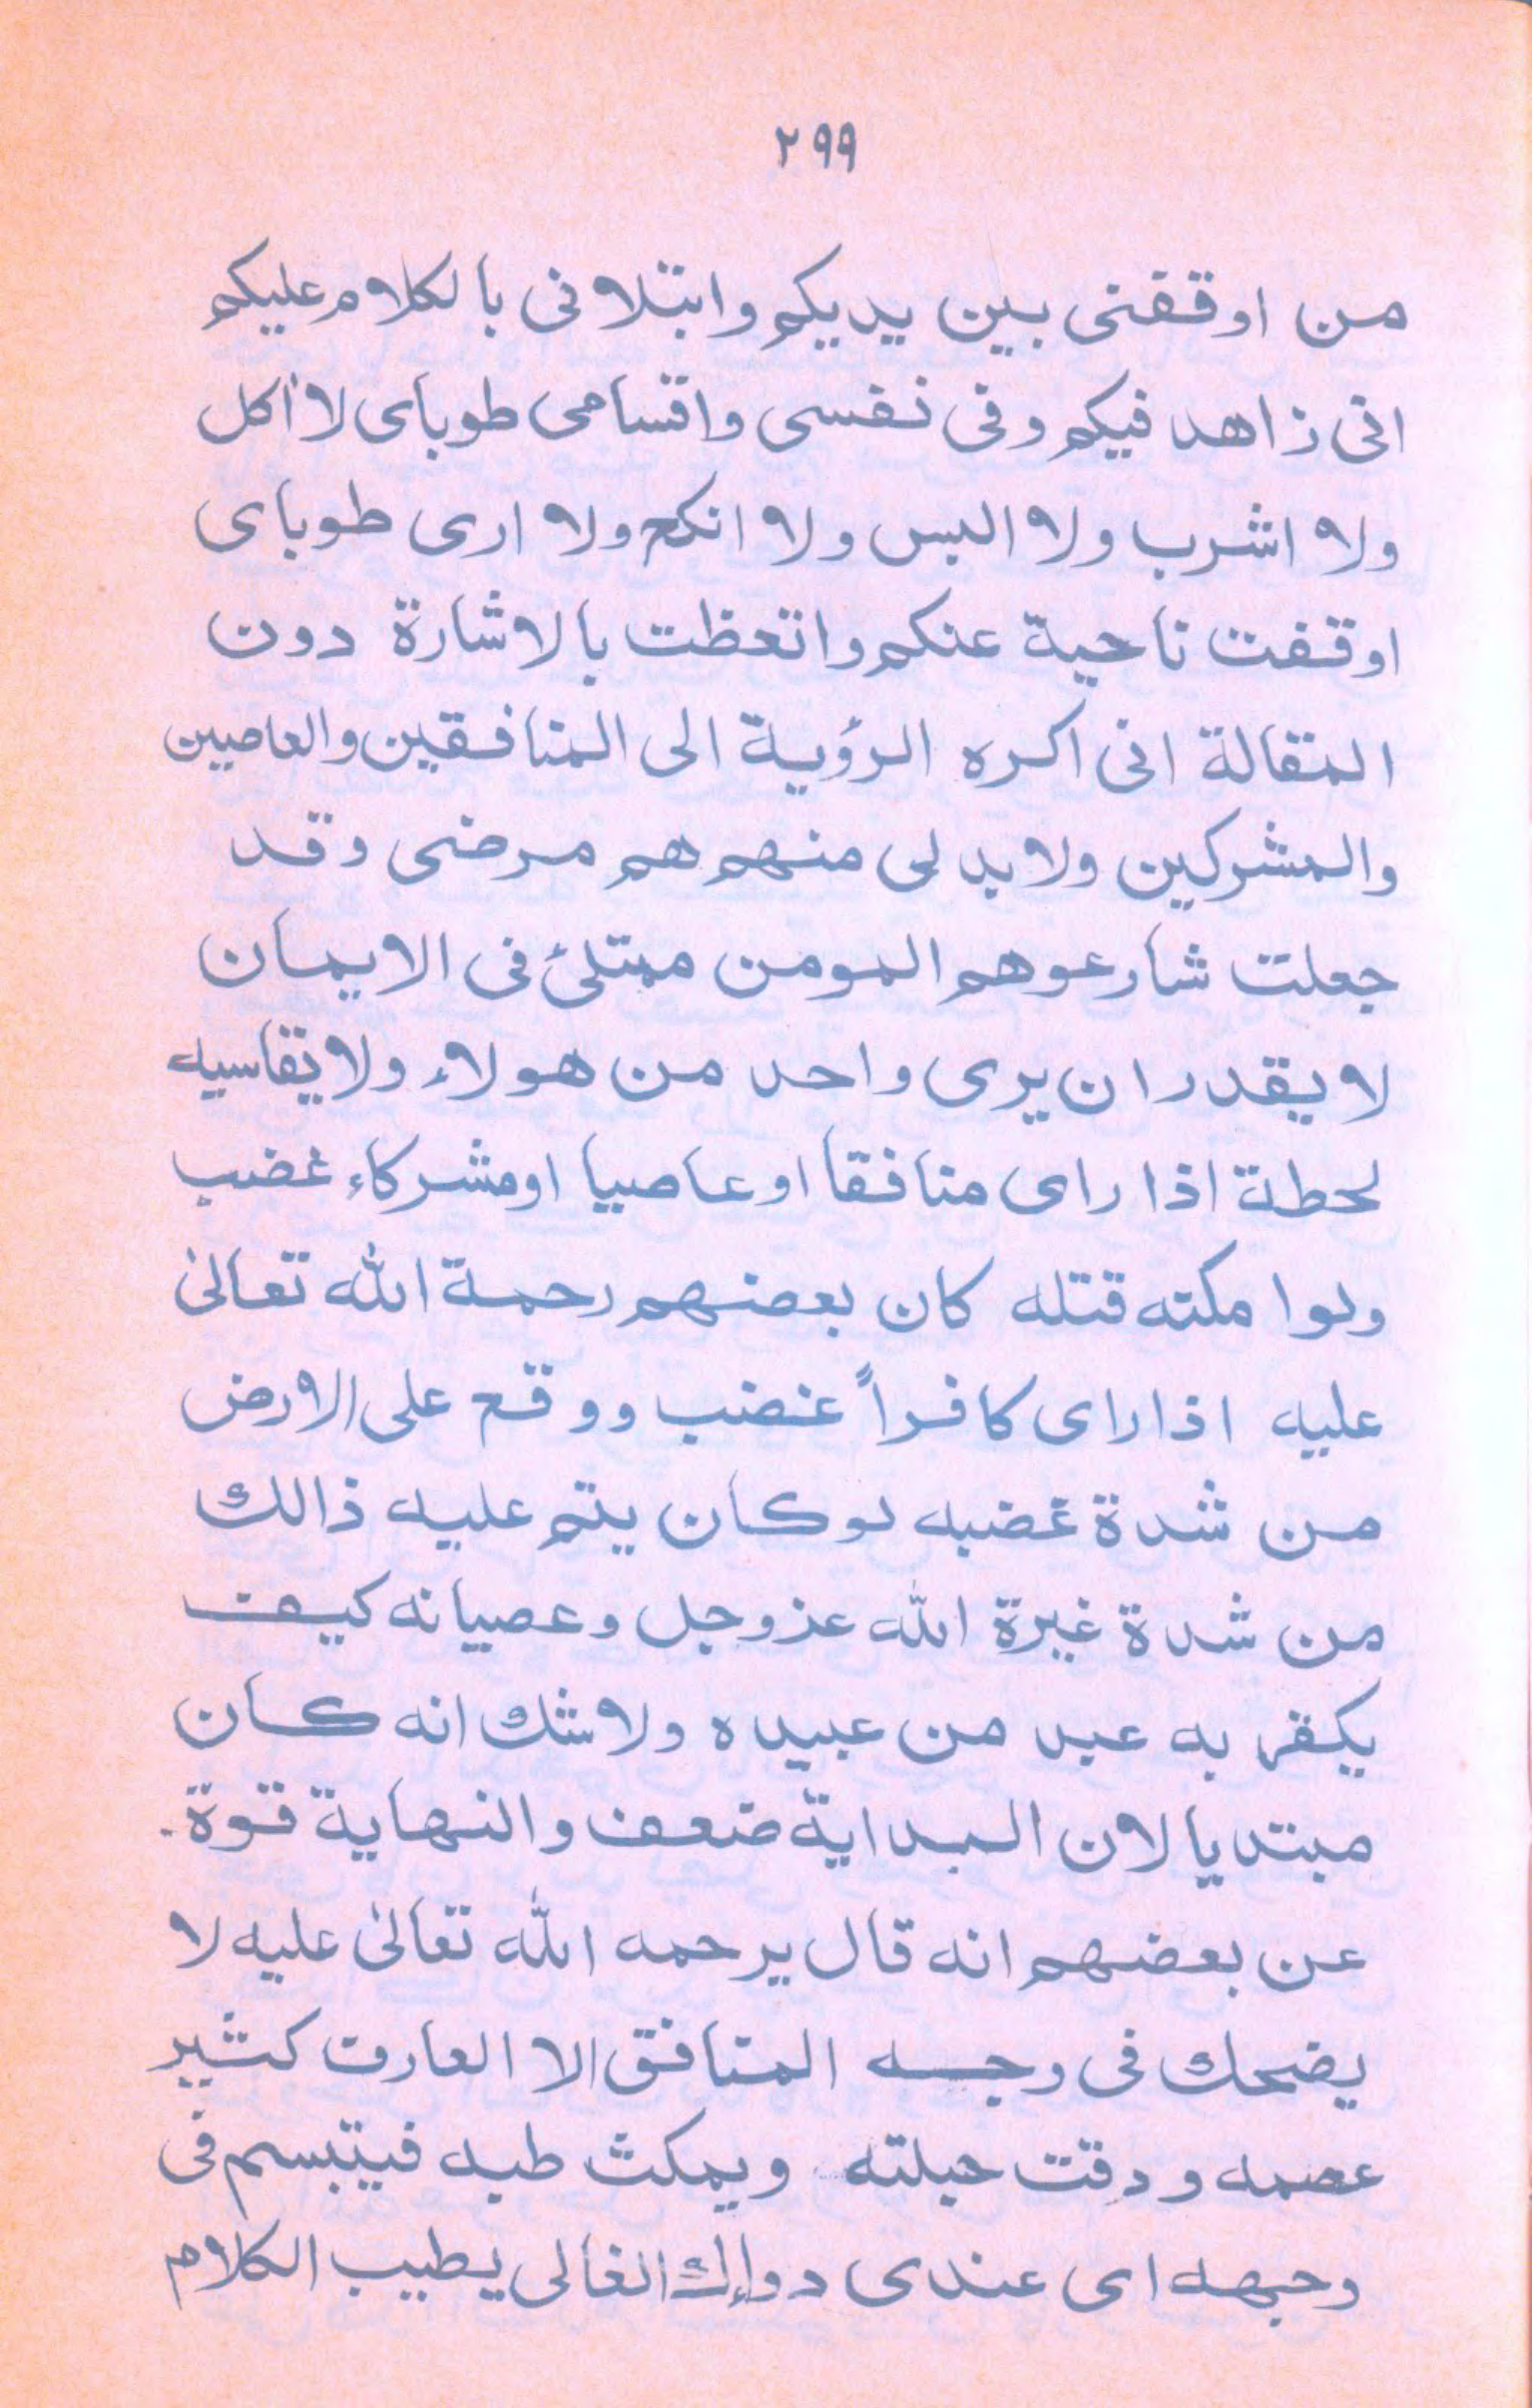 ٢٩٩
من اوقفنى بين يديكم وابتلانى بالكلام عليكم
انى زاهد فيكم وفى نفسى واقسامى طوباى لا أكل
ولا اشرب ولا البس ولا انكح ولا ارى طوباى
اوقفت ناحية عنكم واتعظت بالاشارة دون
المقالة انى اكره الرؤية الى المنافقين والعاصيين
والمشركين ولابد لى منهم هم مرضى وقد
جعلت شارعوهم المومن ممتلئ فى الايمان
لا يقدر ان يرى واحد من هولاء ولا يقاسيه
لحطة اذا راى منافقا او عاصيا او مشركاء غضب
ولوا مكته قتله كان بعضهم رحمة الله تعالىٰ
عليه اذا راى كافراً غضب ووقع على الارض
من شدة غضبه لو كان يتم عليه ذالك
من شدة غيرة الله عزوجل وعصيانه كيف
يكفر به عبد من عبيده ولا شك انه كان
مبتديا لان البداية ضعف والنهاية قوة.
عن بعضهم انه قال يرحمه الله تعالىٰ عليه لا
يضحك فى وجه المنافق الا العارف كثير
عصمه ودقت حيلته ويمكث طبه فيتبسم فى
وجهه اى عندى دوإك الغالى يطيب الكلام